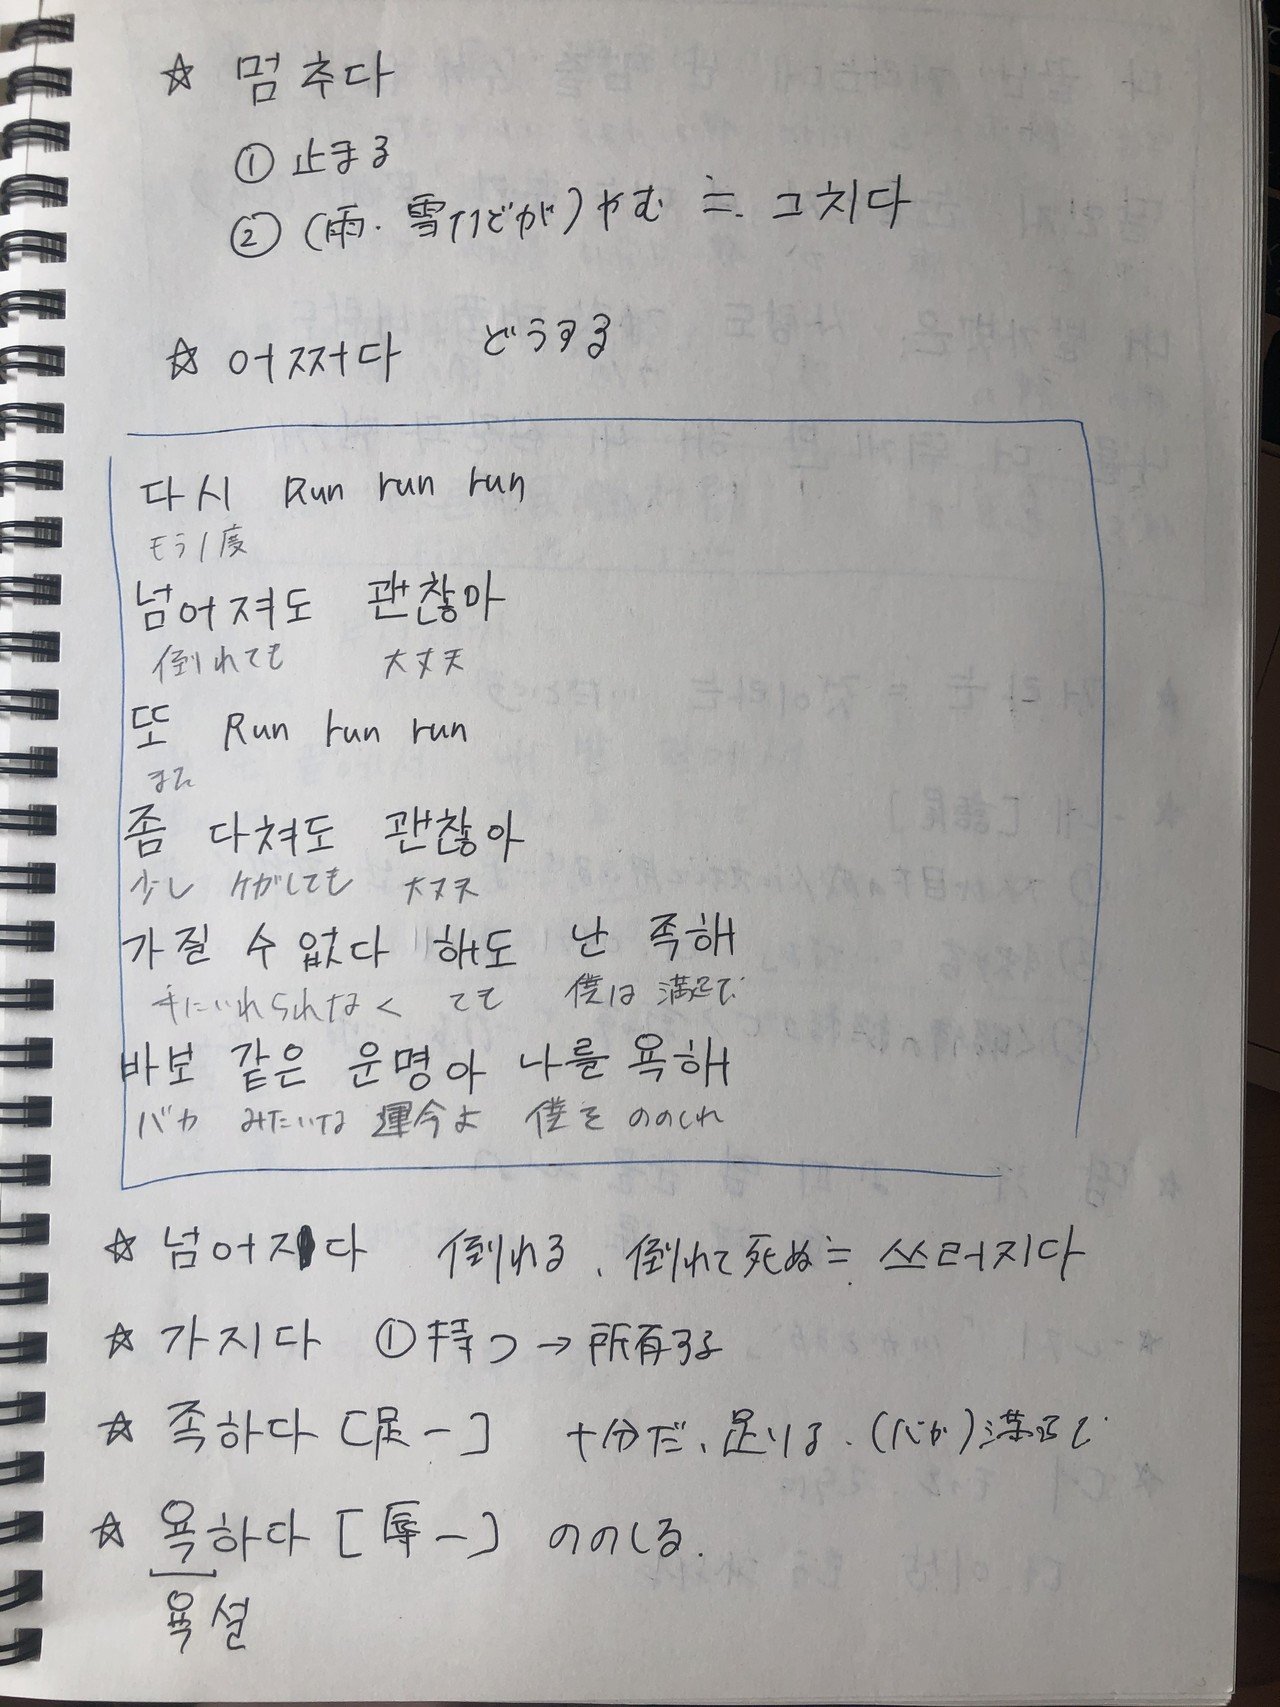 ☆ 멈추다
① 止まる
② (雨・雪などが)やむ ≒ 그치다
☆ 어쩌다 どうする
다시 Run run run
もう1度
넘어져도 괜찮아
倒れても 大丈夫
또 Run run run
また
좀 다쳐도 괜찮아
少し ケガしても 大丈夫
가질 수 없다 해도 난 족해
手にいれられなく ても 僕は 満足で
바보 같은 운명아 나를 욕해
バカ みたいな 運命よ 僕を ののしれ
☆ 넘어지다 倒れる、倒れて死ぬ ≒ 쓰러지다
☆ 가지다 ①持つ→所有する
☆ 족하다 [足ー] 十分だ、足りる、
☆ 욕하다 [辱ー] ののしる.
욕설